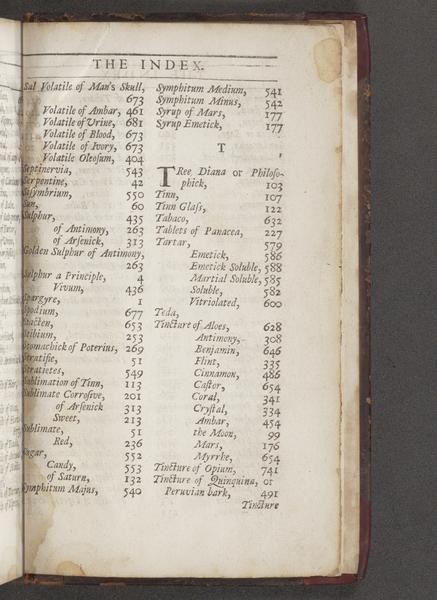 THE INDEX.
Sal Volatile of Man's Skull,
673
Volatile of Ambar, 461
Volatile of Urine, 681
Volatile of Blood, 673
Volatile of Ivory, 673
Volatile Oleosum, 404
Septinervia, 543
Serpentine, 42
Sisymbrium, 550
Sun, 60
Sulphur, 435
of Antimony, 263
of Arsenick, 313
Golden Sulphur of Antimony,
263
Sulphur a Principle, 4
Vivum, 436
Spargyre, 1
Spodium, 677
653
Stibium, 253
Stomachick of Poterius, 269
Stratifie, 51
549
Sublimation of Tinn, 113
Sublimate Corrosive, 201
of Arsenick 313
Sweet, 213
Sublimate, 51
Red, 236
Sugar, 552
Candy, 553
of Saturn, 132
Symphitum Majus, 540
Symphitum Medium, 541
Symphitum Minus, 542
Syrup of Mars, 177
Syrup Emetick, 177
T
TRee, Diana or Philoso-
phick, 103
Tinn, 107
Tinn Glass, 122
Tabaco, 632
Tablets of Panacea, 227
Tartar, 579
Emetick, 586
Emetick Soluble, 588
Martial Soluble, 585
Soluble, 582
Vitriolated, 600
Teda,
Tincture of Aloes, 628
Antimony, 308
Benjamin, 646
Flint, 335
Cinnamon, 486
Castor, 654
Coral, 341
Crystal, 334
Ambar, 454
the Moon, 99
Mars, 176
Myrrhe, 654
Tincture of Opium, 741
Tincture of Quinquina, or
Peruvian bark, 491
Tincture